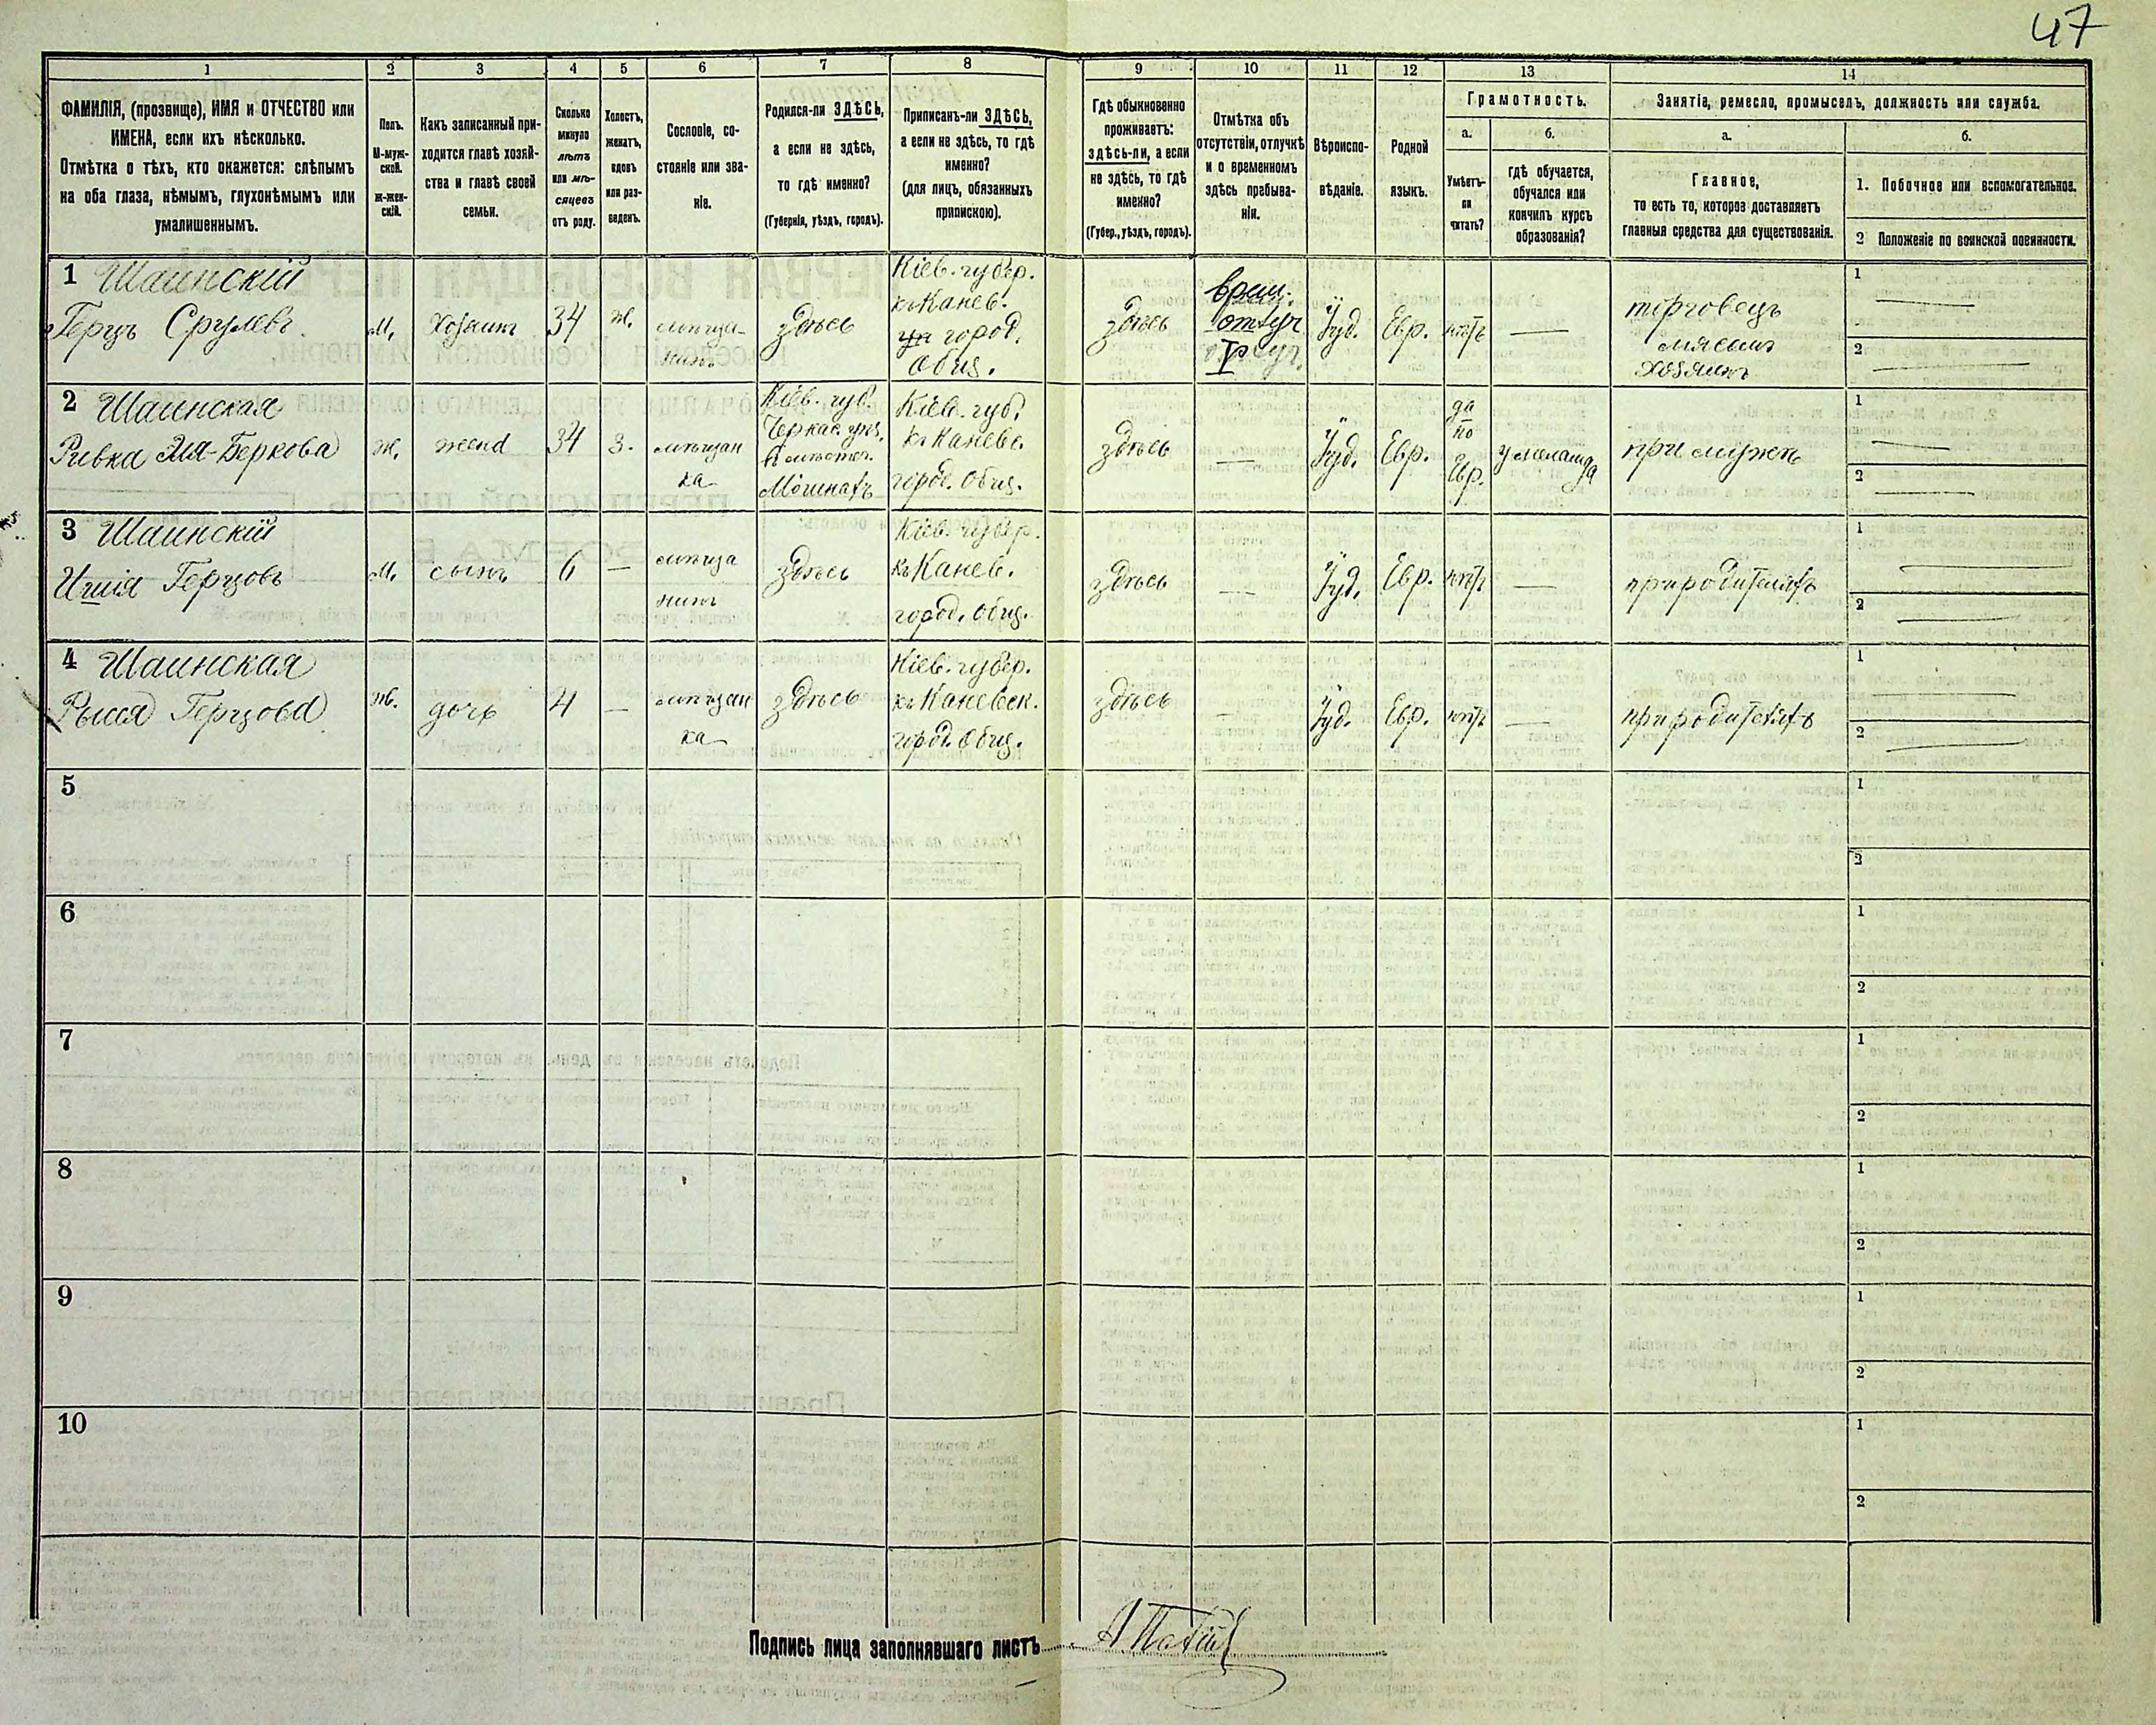 47
1
2
3
4
5
6
7
8
9
10
11
12
13
14
ФАМИЛІЯ, (прозвище), ИМЯ и ОТЧЕСТВО или
ИМЕНА, если ихъ нѣсколько.
Отмѣтка о тѣхъ, кто окажется: слѣпымъ
на оба глаза, нѣмымъ, глухонѣмымъ или
умалишеннымъ.
Полъ.
М-муж-
ской.
ж-жен-
скій.
Какъ записанный при-
ходится главѣ хозяй-
ства и главѣ своей
семьи.
Сколько
минуло
лѣтъ
или мѣ-
сяцевъ
отъ роду.
Холостъ,
женатъ,
вдовъ
или раз-
веденъ.
Сословіе, со-
стояніе или зва-
ніе.
Родился-ли ЗДѢСЬ,
а если не здѣсь,
то гдѣ именно?
(Губернія, уѣздъ, городъ).
Приписанъ-ли ЗДѢСЬ,
а если не здѣсь, то гдѣ
именно?
(для лицъ, обязанныхъ
припискою).
Гдѣ обыкновенно
проживаетъ:
здѣсь-ли, а если
не здѣсь, то гдѣ
именно?
(Губер., уѣздъ, городъ).
Отмѣтка объ
отсутствіи, отлучкѣ
и о временномъ
здѣсь пребыва-
ніи.
Вѣроиспо-
вѣданіе.
Родной
языкъ.
Грамотность.
а.
Умѣетъ-
ли
читать?
б.
гдѣ обучается,
обучался или
кончилъ курсъ
образованія?
Занятіе, ремесло, промыселъ, должность или служба.
а.
Главное,
то есть то, которое доставляетъ
главныя средства для существованія.
б.
1. Побочное или вспомогательное.
2 Положеніе по воинской повинности.
1 Шаинскій
Герцъ Срулевъ
м.
Хозяинъ
34
ж.
мѣща-
нинъ
здѣсь
Кіев. губер.
къ Канев.
город.
Общ.
здѣсь
врем.
отлуч
Іуд.
Евр.
нѣтъ
—
торговецъ
мясомъ
хозяинъ
1
2
2 Шаинская
Ривка Эля-Беркова
ж.
жена
34
з.
мѣщан
ка
Кіев. губ.
Черкас. уѣз.
в мѣстеч.
Мошнахъ
Кіев. губ.
къ Каневс.
город. Общ.
здѣсь
—
Іуд.
Евр.
да
по
Евр.
у меламда
при мужѣ
1
2
3 Шаинскій
Ишія Герцовъ
м.
сынъ
6
—
мѣща
нинъ
здѣсь
Кіев. губер.
къ Канев.
город. Общ.
здѣсь
—
Іуд.
Евр.
нѣтъ
—
при родителяхъ
1
2
4 Шаинская
Рысся Герцова
ж.
дочь
4
—
мѣщан
ка
здѣсь
Кіев. губер.
къ Каневск.
город. Общ.
здѣсь
—
Іуд.
Евр.
нѣтъ
—
при родителяхъ
1
2
5
1
2
6
1
2
7
1
2
8
1
2
9
1
2
10
1
2
Подпись лица заполнявшаго листъ